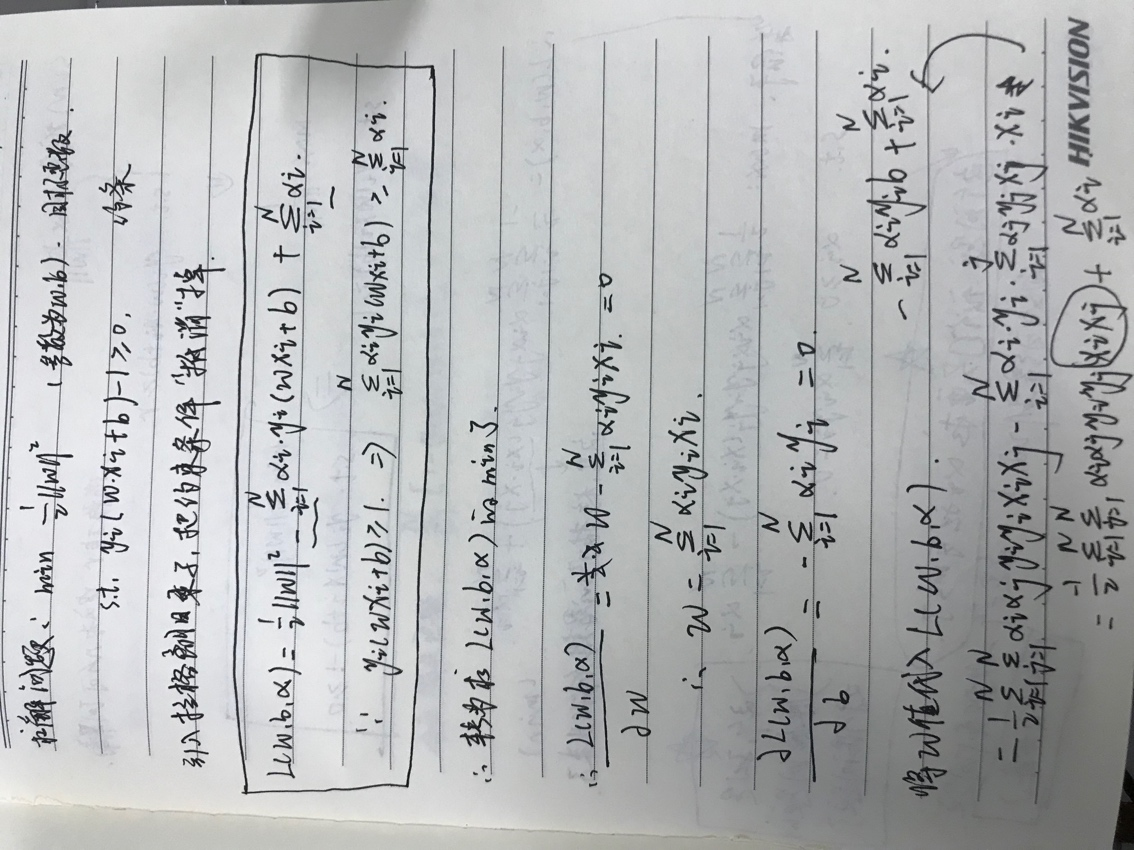 求解问题: min 1/2 ||w||² (参数为w,b). 目标函数.
s.t. yi(w·xi+b)-1≥0. 约束
引入拉格朗日乘子, 把约束条件"抵消"掉.
L(w,b,α) = 1/2||w||² - Σ_{i=1}^N αi·yi(wxi+b) + Σ_{i=1}^N αi.
∵ yi(wxi+b)≥1. ⇒ Σ_{i=1}^N αiyi(wxi+b) ≥ Σ_{i=1}^N αi.
∴ 转为求 L(w,b,α) 的 min 了.
∴ L(w,b,α)/∂w = w - Σ_{i=1}^N αiyixi. = 0
∴ w = Σ_{i=1}^N αiyixi.
∂L(w,b,α)/∂b = - Σ_{i=1}^N αiyi = 0.
将w值代入L(w,b,α). - Σ_{i=1}^N αiyib + Σ_{i=1}^N αi.
= 1/2 Σ_{i=1}^N Σ_{j=1}^N αiαjyiyjxixj - Σ_{i=1}^N αi·yi·Σ αjyjxj·xi
= -1/2 Σ_{i=1}^N Σ_{j=1}^N αiαjyiyj(xixj) + Σ_{i=1}^N αi
HIKVISION